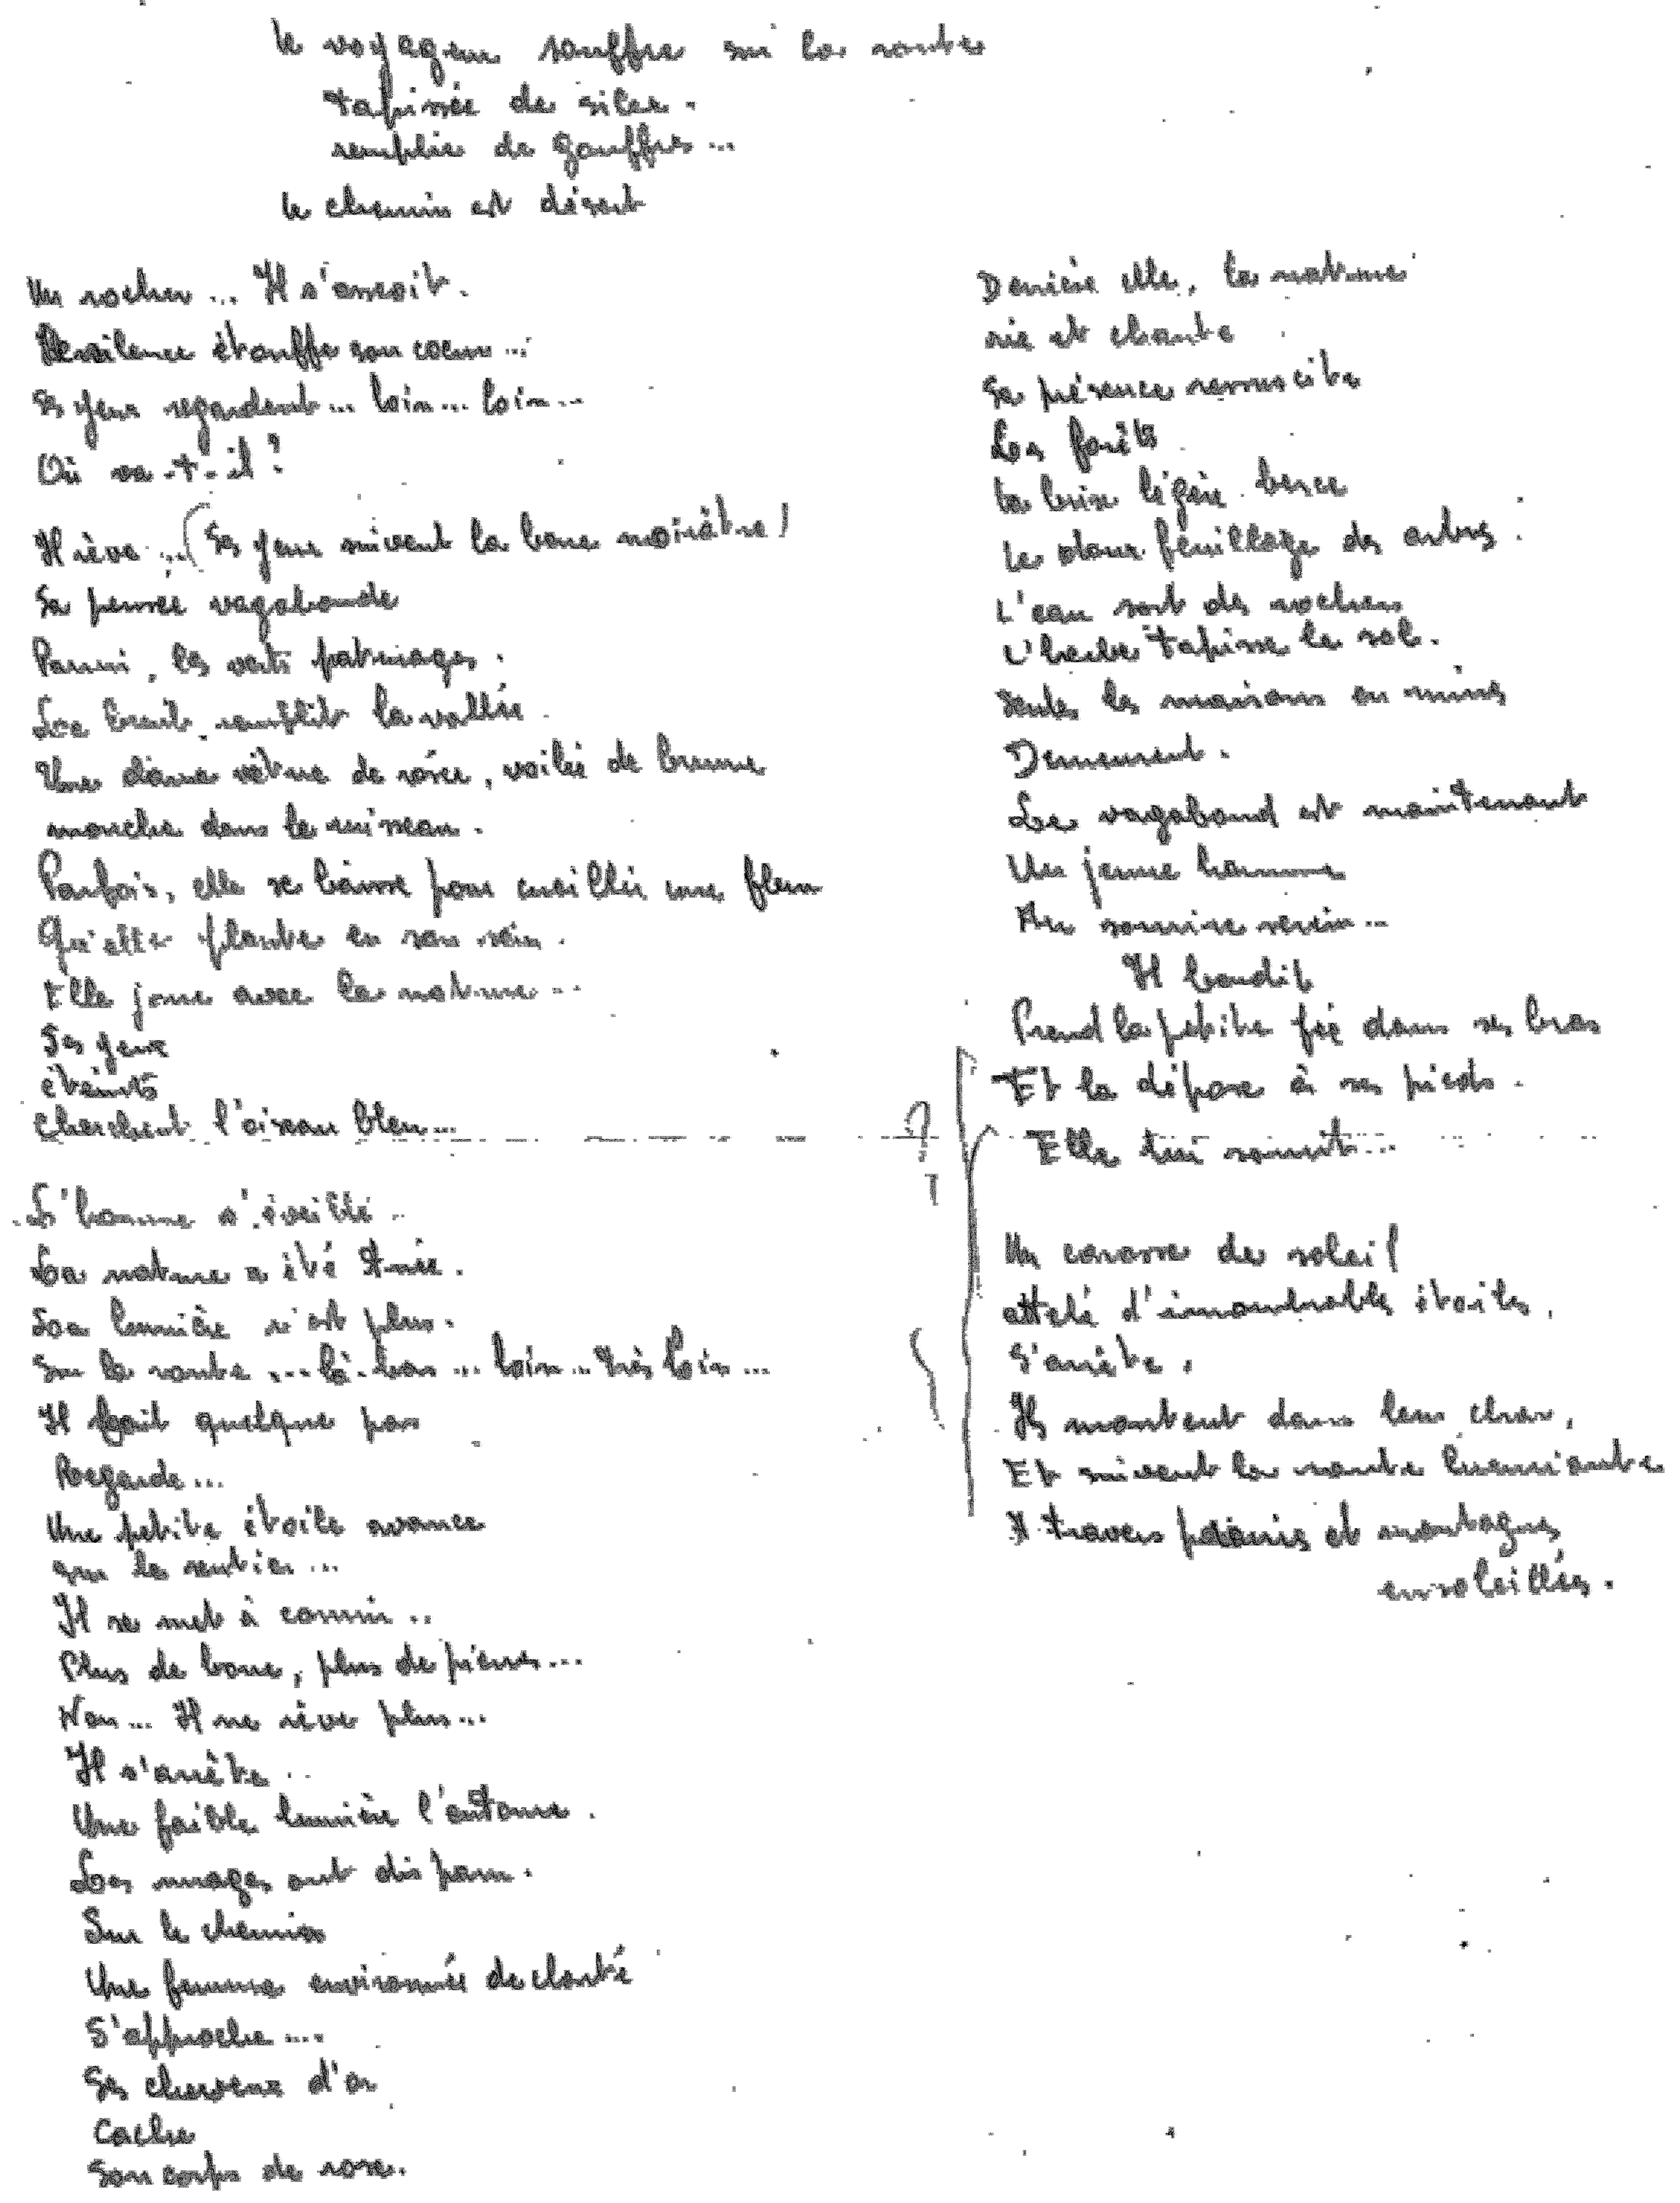 Le voyageur souffre sur la route
tapissée de silex.
remplie de gouffres...
Le chemin est désert
Un rocher... Il s'asseoit.
silence étouffe son coeur...
Ses yeux regardent... loin... loin...
Où va-t-il?
Il rêve... (Ses yeux suivent la boue noirâtre)
Sa pensée vagabonde
Parmi, les verts paturages.
Le bruit remplit la vallée.
Une dame vêtue de rosée, voilée de brume
marche dans le ruisseau.
Parfois, elle se baisse pour cueillir une fleur
Qu'elle plante en son sein.
Elle joue avec la nature...
Ses yeux
éteints
Cherchent l'oiseau bleu...
L'homme s'éveille.
La nature a été tuée.
La lumière n'est plus.
Sur la route... là-bas... loin... très loin...
Il fait quelque pas
Regarde...
Une petite étoile avance
sur le sentier...
Il se met à courrir..
Plus de boue, plus de pierres...
Non... Il ne rêve plus...
Il s'arrête.
Une faible lumière l'entoure.
Les nuages ont disparu.
Sur le chemin
Une femme environnée de clarté
S'approche...
Ses cheveux d'or
Cache
Son corps de rose.
Derrière elle, la nature
rie et chante
Sa présence ressuscite
Les forêts
La brise légère berce
Le doux feuillage des arbres.
L'eau sort des rochers
L'herbe tapisse le sol.
Seules les maisons en ruines
Demeurent.
Le vagabond est maintenant
Un jeune homme
Au sourire serein...
Il bondit
Prend la petite fée dans ses bras
Et la dépose à ses pieds.
Elle lui sourit...
Un carosse de soleil
attelé d'innombrables étoiles,
S'arrête,
Ils montent dans leur char,
Et suivent la route luminante
A travers plaines et montagnes
ensoleillées.